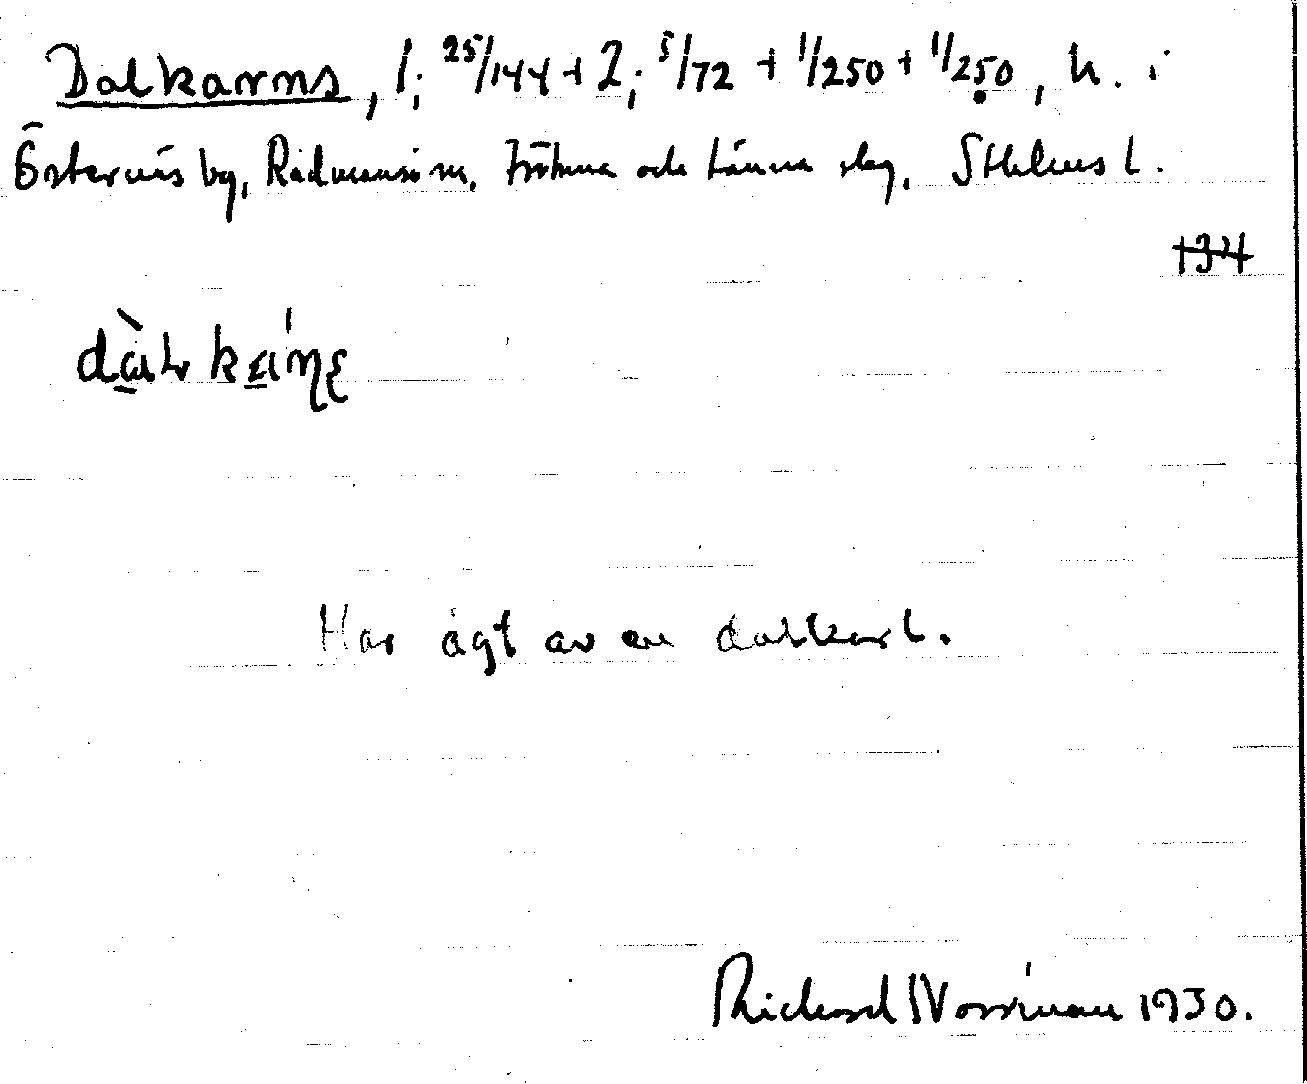 Dalkarns, 1; 25/144 + 2; 5/72 + 1/250 + 1/250, h. i
Östernäs by, Rådmansö sn, Frötuna och Länna slg, Sthlms l.
134
Har ägt av en dalkarl.
Richard Norrman 1930.